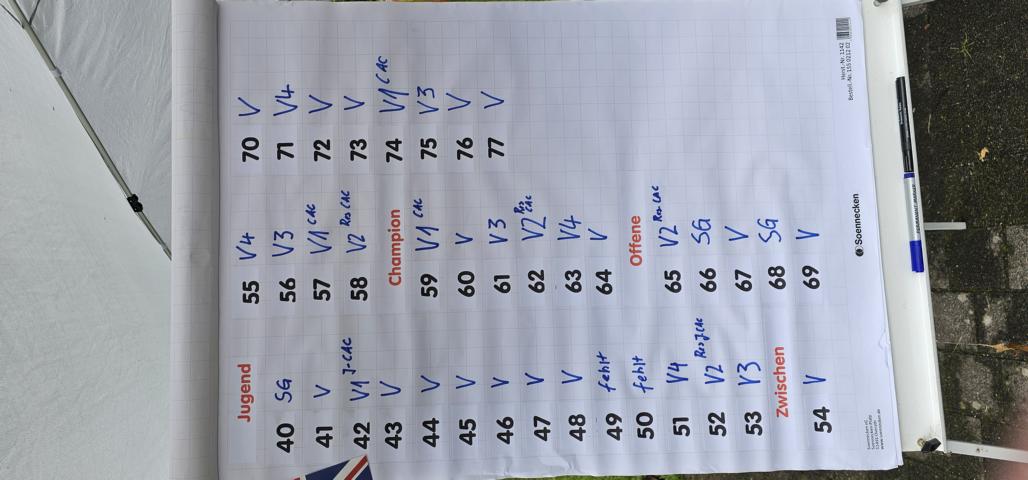 Jugend
40 SG
41 V
42 V1 J-CAC
43 V
44 V
45 V
46 V
47 V
48 V
49 fehlt
50 fehlt
51 V4
52 V2 Res J-CAC
53 V3
Zwischen
54 V
55 V4
56 V3
57 V1 CAC
58 V2 Res CAC
Champion
59 V1 CAC
60 V
61 V3
62 V2 Res CAC
63 V4
64 V
Offene
65 V2 Res CAC
66 SG
67 V
68 SG
69 V
70 V
71 V4
72 V
73 V
74 V1 CAC
75 V3
76 V
77 V
Soennecken